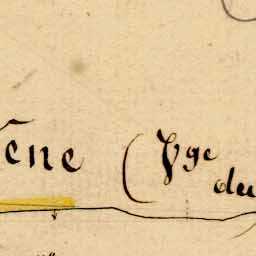 ene (Vge
du